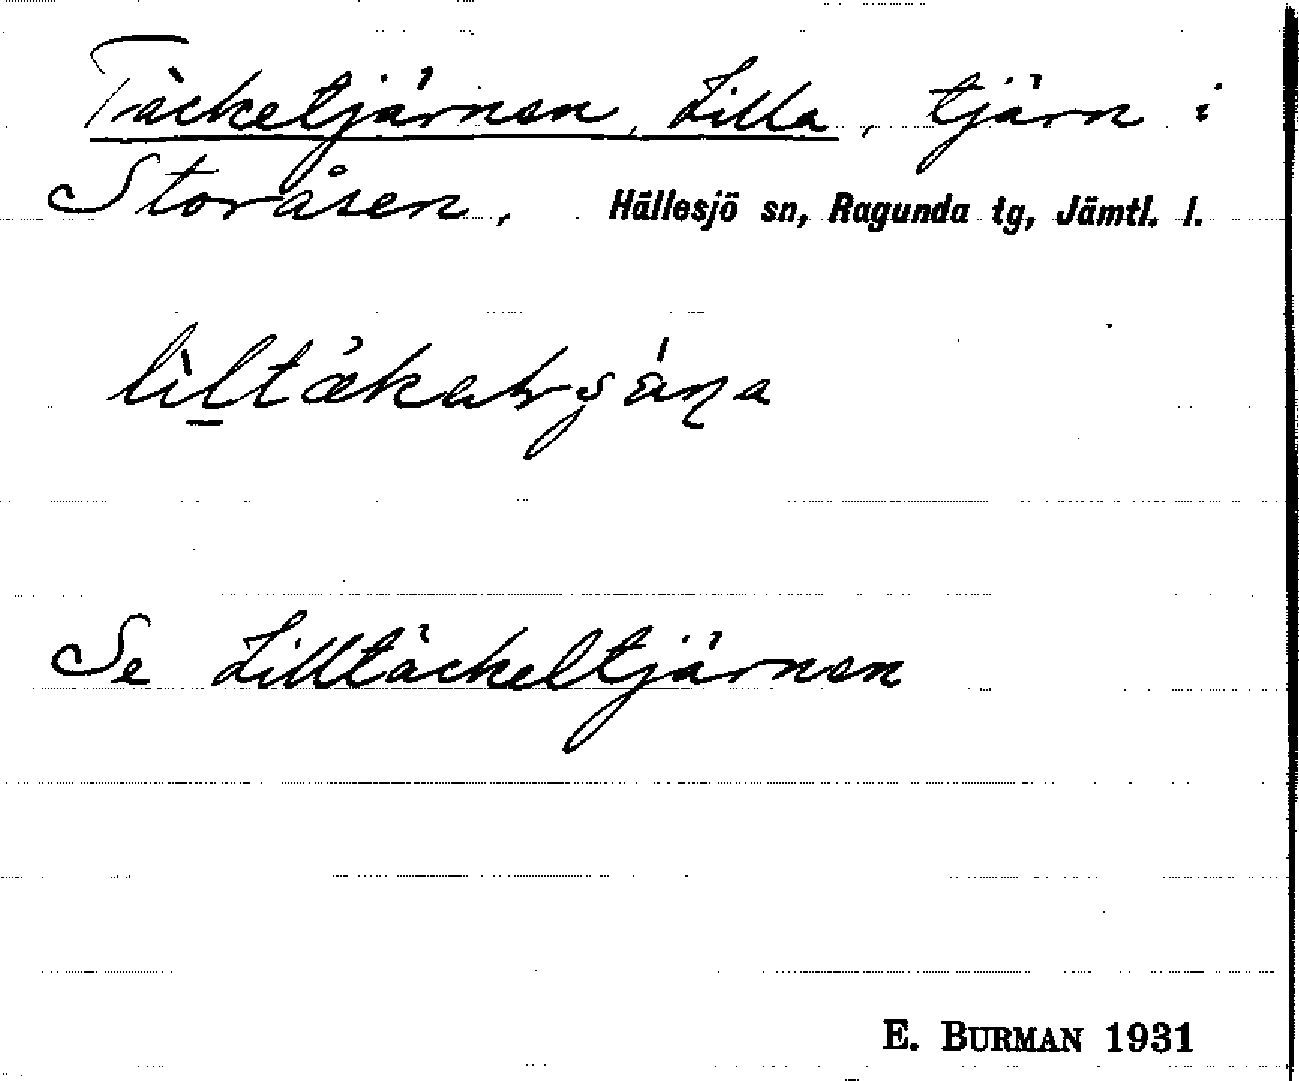 Täcketjärnen, Lilla, tjärn i
Storåsen, Hällesjö sn, Ragunda tg, Jämtl. l.
Se Lilltäckeltjärnen
E. BURMAN 1931